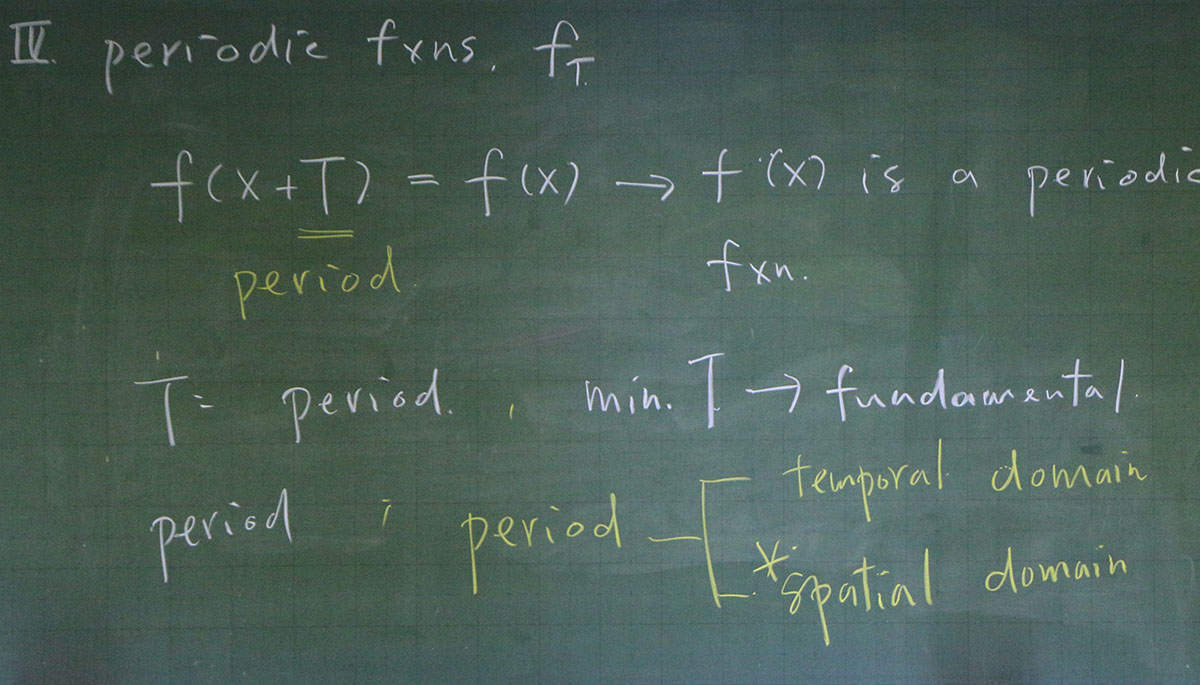 IV. periodic fxns. f_T.
f(x+T) = f(x) → f(x) is a periodic
period. fxn.
T = period. , min. T → fundamental.
temporal domain
period ; period
* spatial domain